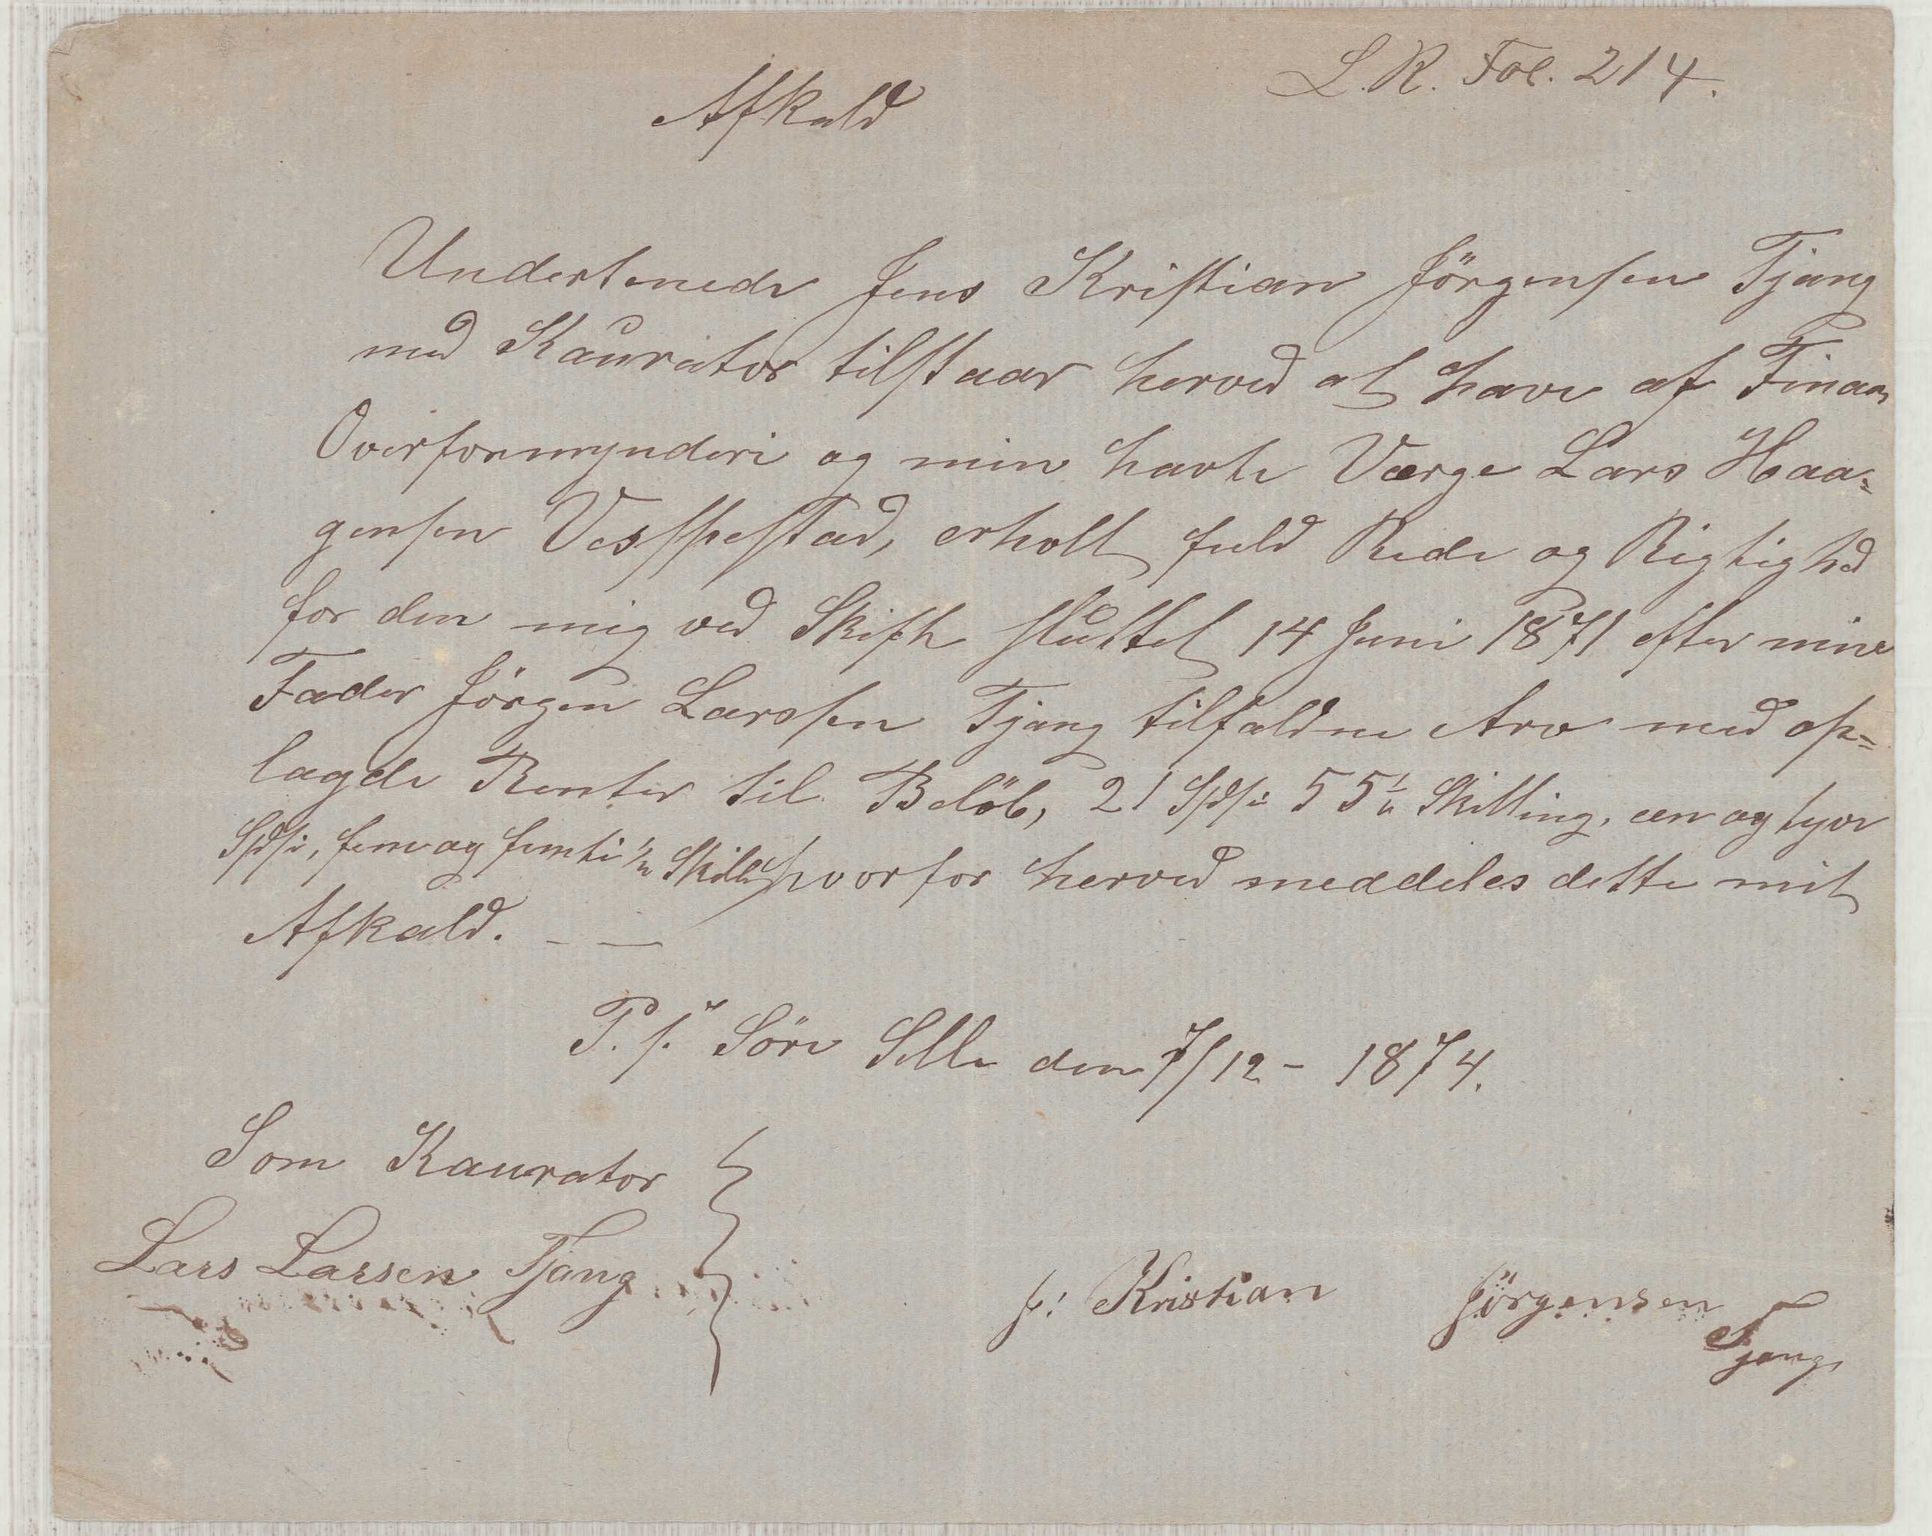 L. R. Fol. 214.
Afkald
Undertenede Jens Kristian Jörgensen Tjang
med Kaurator tilstaar herved at have af Finaas
Overformynderi og min havte Værge Lars Haa-
gensen Vespestad, erholt fuld Rede og Rigtighed
for den mig ved Skifte sluttet 14 Juni 1871 efter min
Fader Jörgen Larssen Tjang tilfaldne Arv med op-
lagde Renter til Belöb, 21 Spd: 55½ Skilling, een og tyve
Spd:, fem og femti ½ Skill hvorfor herved meddeles dette mit
Afkald. - —
P. t. Söre Selle den 7/12 - 1874.
Som Kaurator
Lars Larsen Tjang
J: Kristian Jörgensen
Tjang